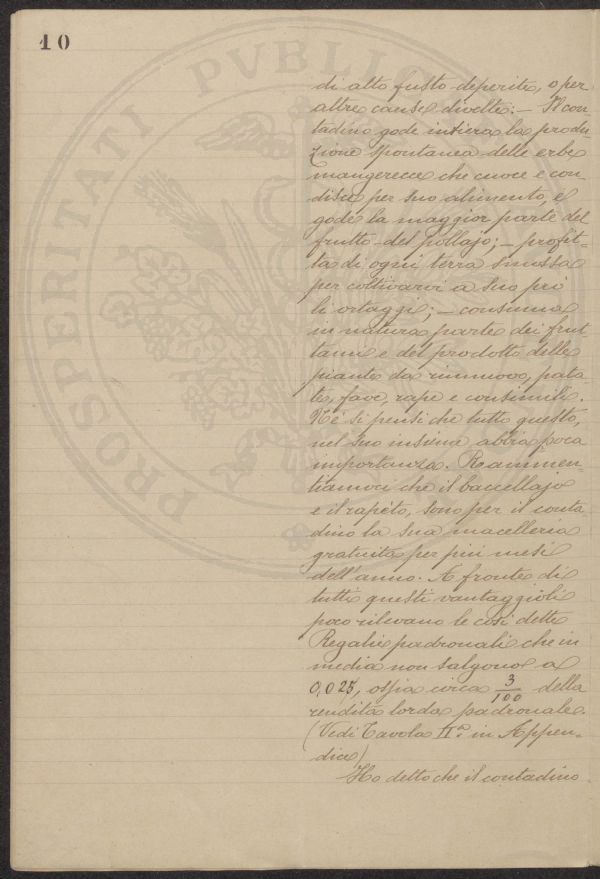 10
PROSPERITATI PVBLIC
di alto fusto deperite, o per
altre cause divelte: — Il con-
tadino gode intiera la produ-
zione spontanea delle erbe
mangerecce che cuoce e con-
disce per suo alimento, e
gode la maggior parte del
frutto del pollajo; — profit-
ta di ogni terra smossa
per coltivarvi a suo prò
li ortaggi; — consuma
in natura parte dei frut
tami e del prodotto delle
piante da rinnuovo, pata
te, fave, rape e consimili.
Nè si pensi che tutto questo,
nel suo insieme abbia poca
importanza. Rammen-
tiamoci che il baccellajo
e il rapéto, sono per il conta
dino la sua macelleria
gratuita per più mesi
dell'anno. A fronte di
tutti questi vantaggioli
poco rilevano le così dette
Regalie padronali che in
media non salgono a
0,025, ossia circa 3/100 della
rendita lorda padronale.
(Vedi Tavola IIa in Appen-
dice)
Ho detto che il contadino